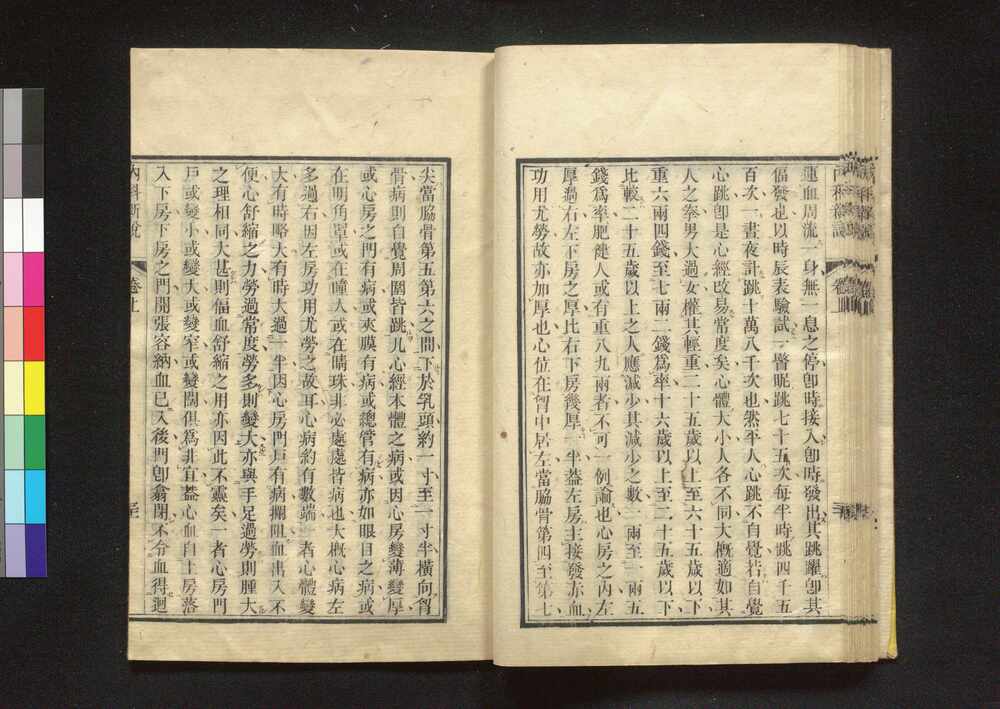 運血周流一身無一息之停卽時接入卽時發出其跳躍卽其
偪發也以時辰表驗試一瞥呢跳七十五次每半時跳四千五
百次一晝夜計跳十萬八千次也然平人心跳不自覺若自覺
心跳卽是心經改易常度矣心體大小人各不同大概適如其
人之拳男大過女權其輕重二十五歲以上至六十五歲以下
重六兩四錢至七兩二錢爲率十六歲以上至二十五歲以下
比較二十五歲以上之人應減少其減少之數一兩至一兩五
錢爲率肥健人或有重八九兩者不可一例論也心房之內左
厚過右左下房之厚比右下房幾厚一半蓋左房主接發赤血
功用尤勞故亦加厚也心位在胷中居左當脇骨第四至第七
尖當脇骨第五第六之間下於乳頭約一寸至一寸半橫向胷
骨病則自覺周圍皆跳凡心經本體之病或因心房變薄變厚
或心房之門有病或夾膜有病或總管有病亦如眼目之病或
在明角罩或在瞳人或在睛珠非必處處皆病也大概心病左
多過右因左房功用尤勞之故耳心病約有數端一者心體變
大有時略大有時大過一半因心房門戶有病攔阻血出入不
便心舒縮之力勞過常度勞多則變大亦與手足過勞則腫大
之理相同大甚則偪血舒縮之用亦因此不靈矣一者心房門
戶或變小或變大或變窄或變闊俱爲非宜蓋心血自上房落
入下房下房之門開張容納血已入後門卽翕閉不令血得迴
內科新說
卷上